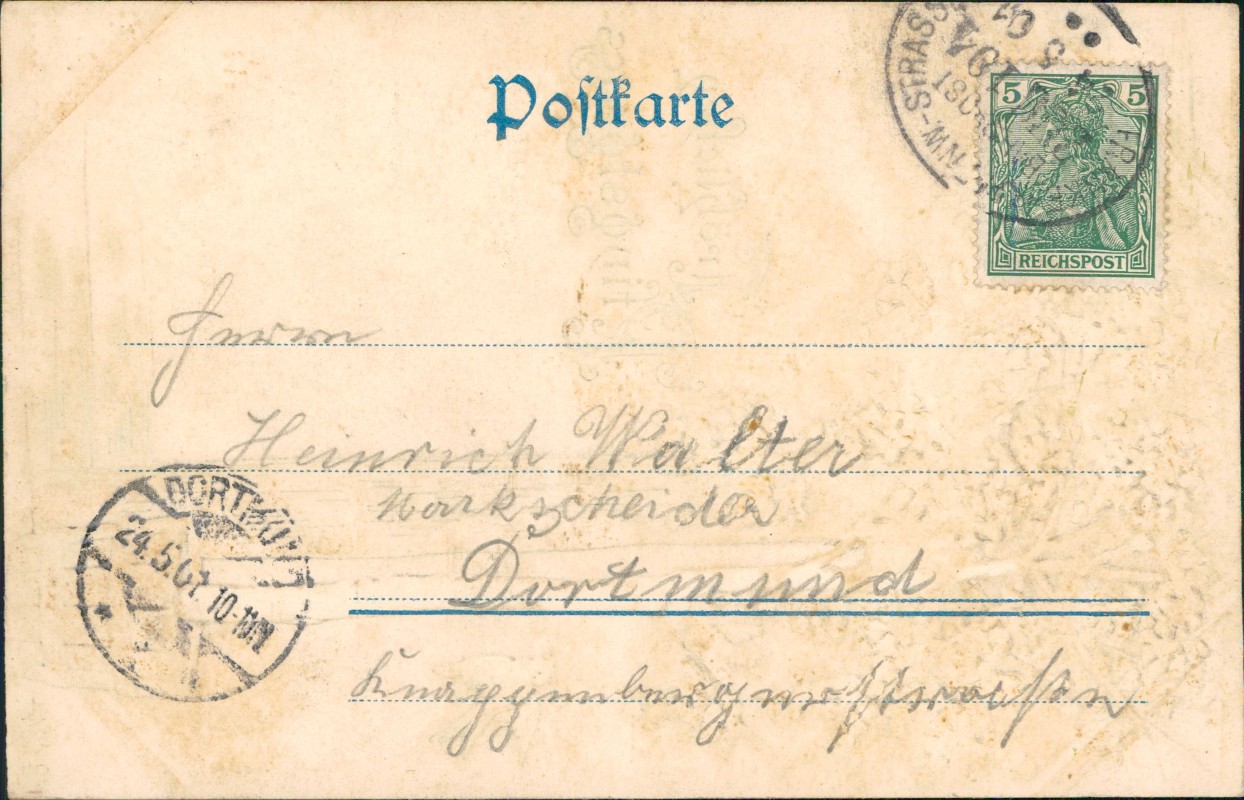 Postkarte
5 5
REICHSPOST
Herrn
Heinrich Walter
Markscheider
Dortmund
Knappenbergerstrasse
DORTMUND
24.5.01 10-11N